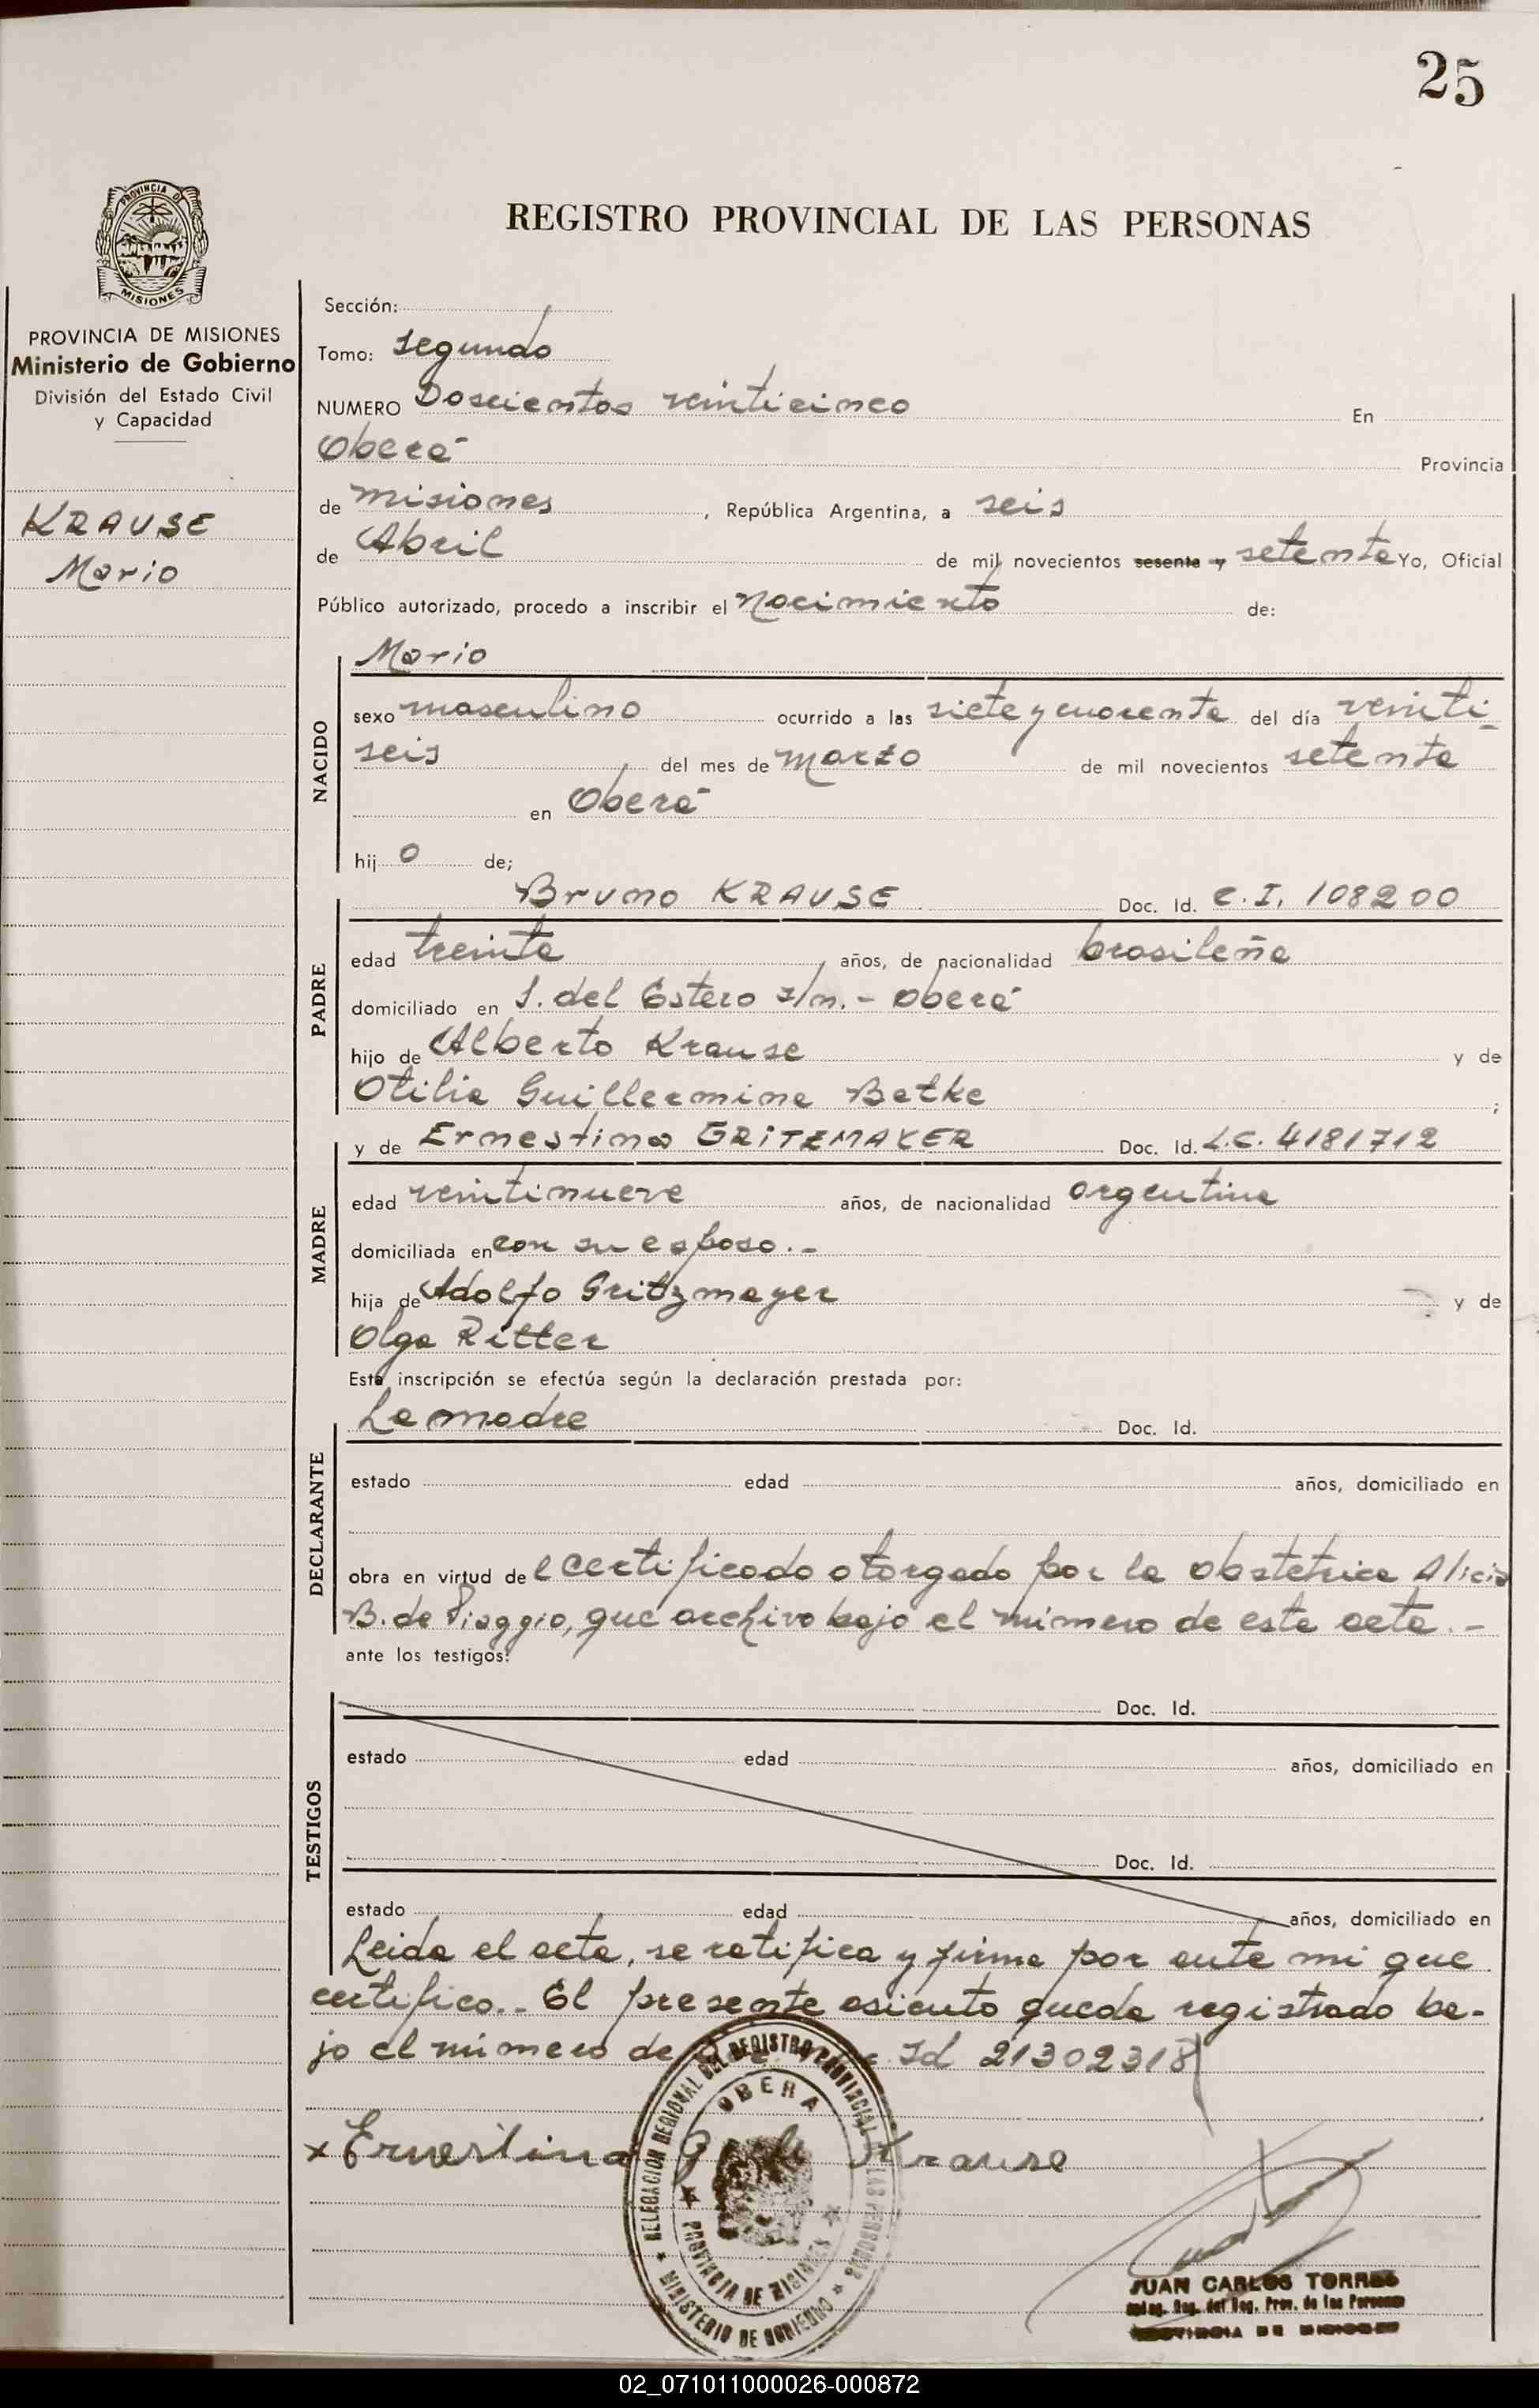 25
PROVINCIA DE
MISIONES
REGISTRO PROVINCIAL DE LAS PERSONAS
PROVINCIA DE MISIONES
Ministerio de Gobierno
División del Estado Civil
y Capacidad
KRAUSE
Mario
Sección:
Tomo: Segundo
NUMERO Doscientos veinticinco En
Oberá Provincia
de Misiones, República Argentina, a seis
de Abril de mil novecientos sesenta y setenta Yo, Oficial
Público autorizado, procedo a inscribir el nacimiento de:
NACIDO
Mario
sexo masculino ocurrido a las siete y cuarenta del día veinti-
seis del mes de Marzo de mil novecientos setenta
en Oberá
hij o de;
PADRE
Bruno KRAUSE Doc. Id. C.I. 108200
edad treinta años, de nacionalidad brasileña
domiciliado en S. del Estero s/n.- Oberá
hijo de Alberto Krause y de
Otilia Guillermina Betke;
MADRE
y de Ernestina GRITZMAYER Doc. Id. L.C. 4181712
edad veintinueve años, de nacionalidad argentina
domiciliada en con su esposo.-
hija de Adolfo Gritzmayer y de
Olga Ritter
Esta inscripción se efectúa según la declaración prestada por:
DECLARANTE
La madre Doc. Id.
estado edad años, domiciliado en
obra en virtud de l certificado otorgado por la obstetrica Alicia
B. de Piaggio, que archivo bajo el número de este acta.-
ante los testigos:
TESTIGOS
Doc. Id.
estado edad años, domiciliado en
Doc. Id.
estado edad años, domiciliado en
Leida el acta, se ratifica y firma por ante mi que
certifico.- El presente asiento queda registrado ba-
jo el número de Id 21302318
x Ernestina G Krause
DELEGACION REGIONAL DEL REGISTRO PROVINCIAL DE LAS PERSONAS
OBERA
PROVINCIA DE MISIONES
MINISTERIO DE GOBIERNO
JUAN CARLOS TORRES
Reg. del Reg. Prov. de las Personas
PROVINCIA DE MISIONES
02_071011000026-000872